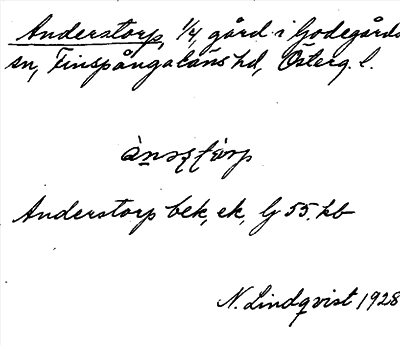 Anderstorp, 1/4 gård i Godegårds
sn, Finspångaläns hd, Österg. l.
Anderstorp bek, ek, G 55. hb
N. Lindqvist 1928